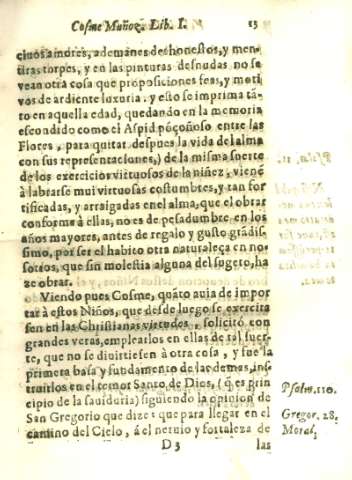 Cosme Muñoz. Lib. I. 15
ciuos amores, ademanes deshonestos, y men-
tiras torpes, y en las pinturas desnudas no se
vean otra cosa que proposiciones feas, y moti
vos de ardiente luxuria. y esto se imprima tã-
to en aquella edad, quedando en la memoria
escondido como el Aspid põçoñoso entre las
Flores, para quitar despues la vida del alma
con sus representaciones,) de la misma suerte
de los exercicios virtuosos de la niñez, vienẽ
à labrarse mui virtuosas costumbres, y tan for
tificadas, y arraigadas en el alma, que el obrar
conforme à ellas, no es de pesadumbre en los
años mayores, antes de regalo y gusto grãdis-
simo, por ser el habito otra naturaleça en no-
sotros, que sin molestia alguna del sugeto, ha
ze obrar.
Viendo pues Cosme, quãto auia de impor
tar à estos Niños, que desde luego se exercita
sen en las Christianas virtudes, solicitó con
grandes veras, emplearlos en ellas de tal suer-
te, que no se diuirtiesen à otra cosa, y fue la
primera basa y fundamento de las demas, ins-
truirlos en el temor Santo de Dios, (q̃ es prin
cipio de la sauiduria) siguiendo la opinion de
San Gregorio que dize: que para llegar en el
camino del Cielo, á el neruio y fortaleza de
D 3 las
Psalm. 110.
Gregor. 28.
Moral,